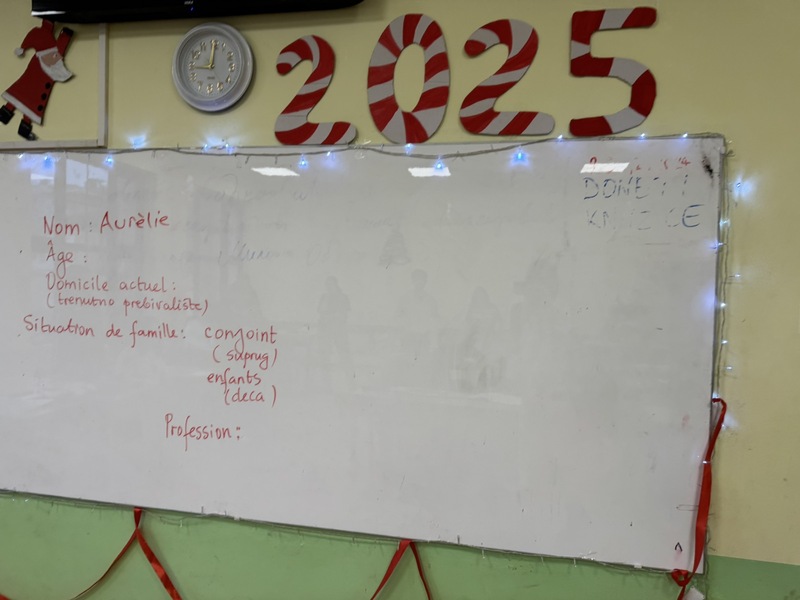 2025
Nom : Aurèlie
Âge :
Domicile actuel :
(trenutno prebivalište)
Situation de famille : conjoint
(suprug)
enfants
(deca)
Profession :